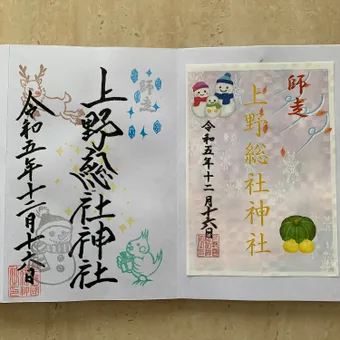 師走
上野総社神社
令和五年十二月十六日
師走
上野総社神社
令和五年十二月十六日